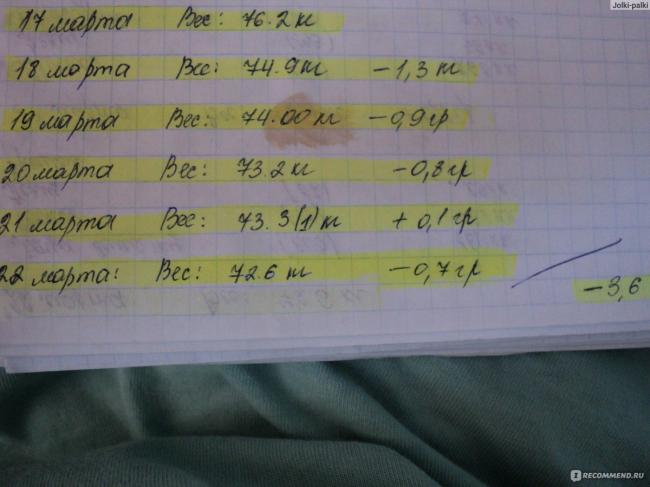 Jolki-palki
17 марта Вес: 76.2 кг
18 марта Вес: 74.9 кг -1,3 кг
19 марта Вес: 74.00 кг -0,9 гр
20 марта Вес: 73.2 кг -0,8 гр
21 марта Вес: 73.3(1) кг +0,1 гр
22 марта: Вес: 72.6 кг -0,7 гр
-3,6
IRECOMMEND.RU